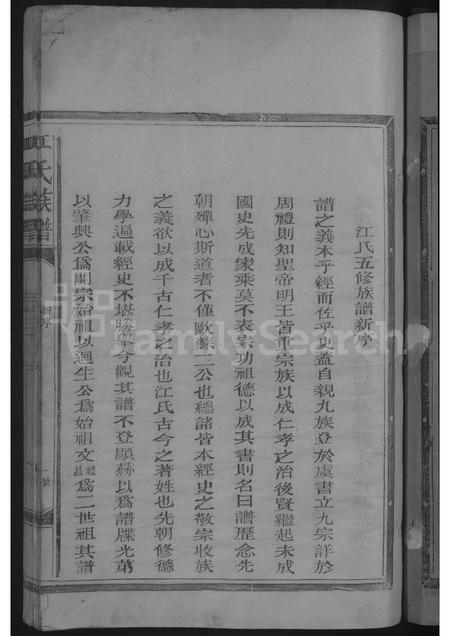 江氏五修族譜新序
譜之義本乎經而佐乎史蓋自親九族登於虞書立九宗詳於
周禮則知聖帝明王皆重宗族以成仁孝之治後賢繼起未成
國史先成家乘莫不表宗功祖德以成其書則名曰譜歷念先
朝殫心斯道者不僅歐蘇二公也總諸皆本經史之敬宗收族
之義欲以成千古仁孝之治也江氏古今之著姓也先朝修德
力學過載經史不堪勝舉今觀其譜不登顯赫以為譜牒光第
以肇興公為開宗始祖以迴生公為始祖文禮昌為二世祖其譜
江氏族譜
新序
一號
FamilySearch